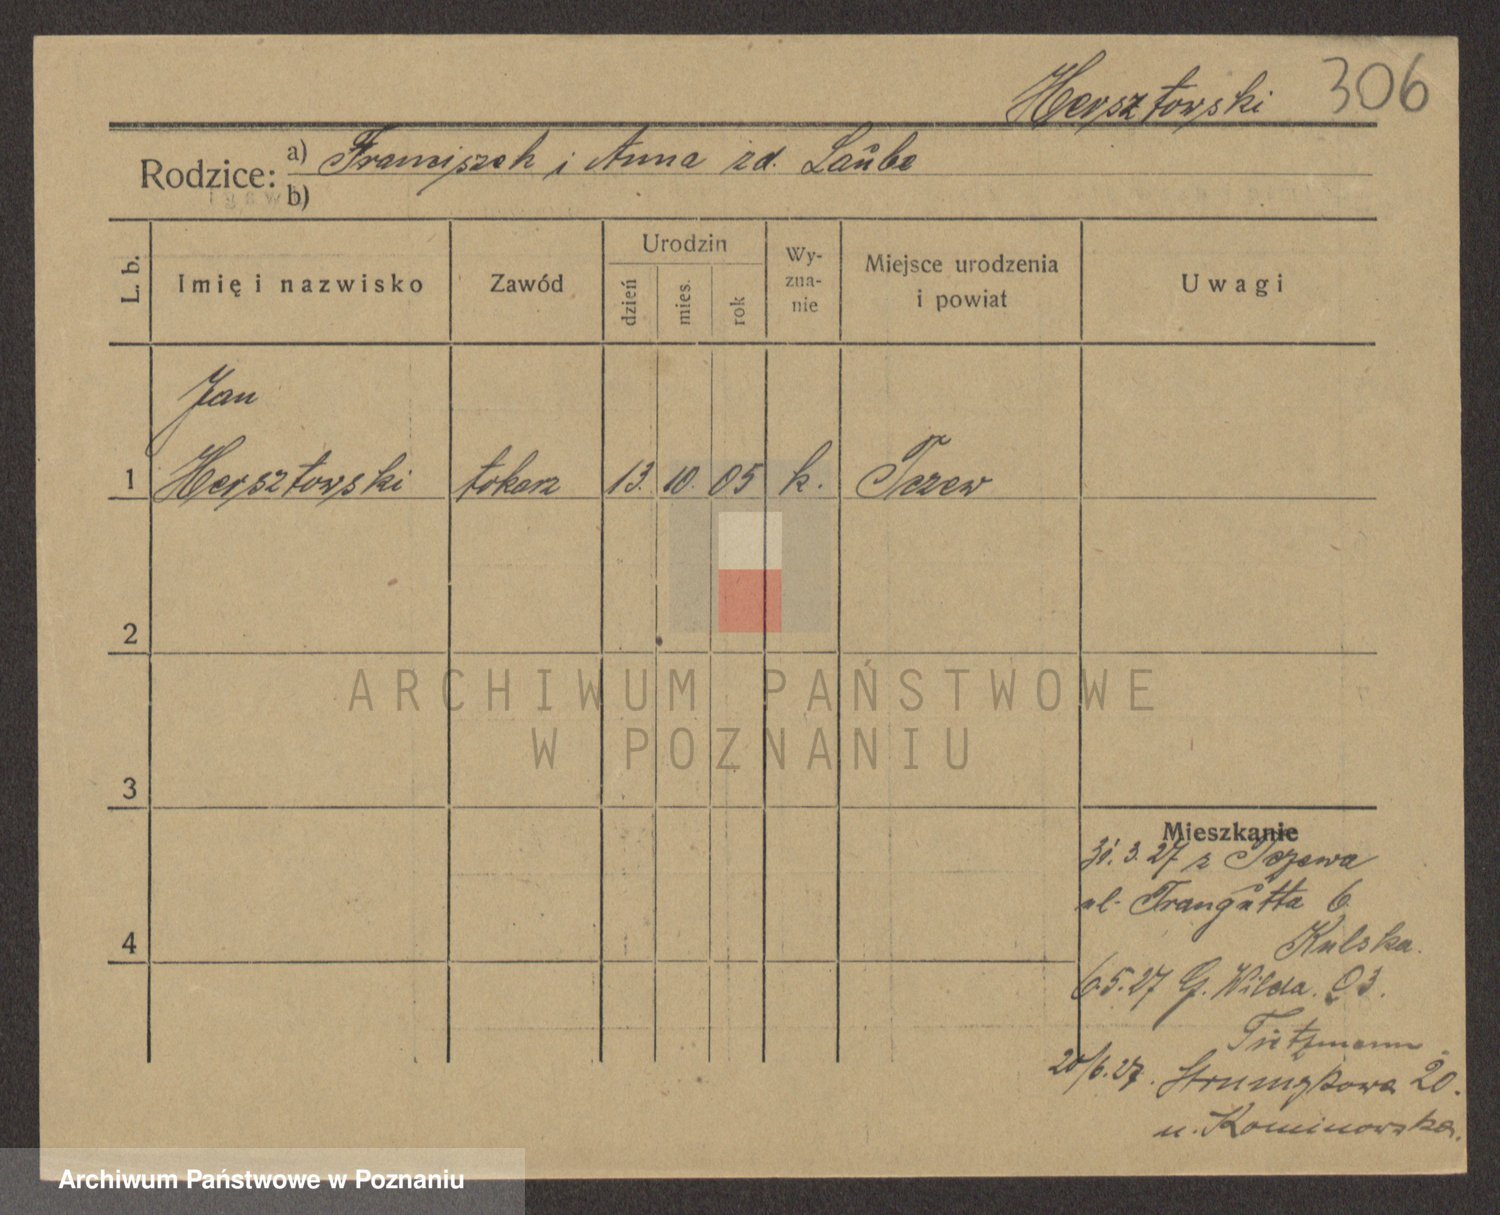 Hersztowski 306
Rodzice: a) Franciszek i Anna zd. Laube
b)
L. b. Imię i nazwisko Zawód Urodzin dzień mies. rok Wy-zna-nie Miejsce urodzenia i powiat Uwagi
Jan
1 Hersztowski tokarz 13. 10. 05 k. Tczew
2
ARCHIWUM PAŃSTWOWE
W POZNANIU
3
Mieszkanie
31. 3. 27 z Tczewa
ul. Traugutta 6
Kulska.
6.5.27 G. Wilda 93.
Tietzmann
20/6.27. Strumykowa 20.
u. Kominowska.
Archiwum Państwowe w Poznaniu
4